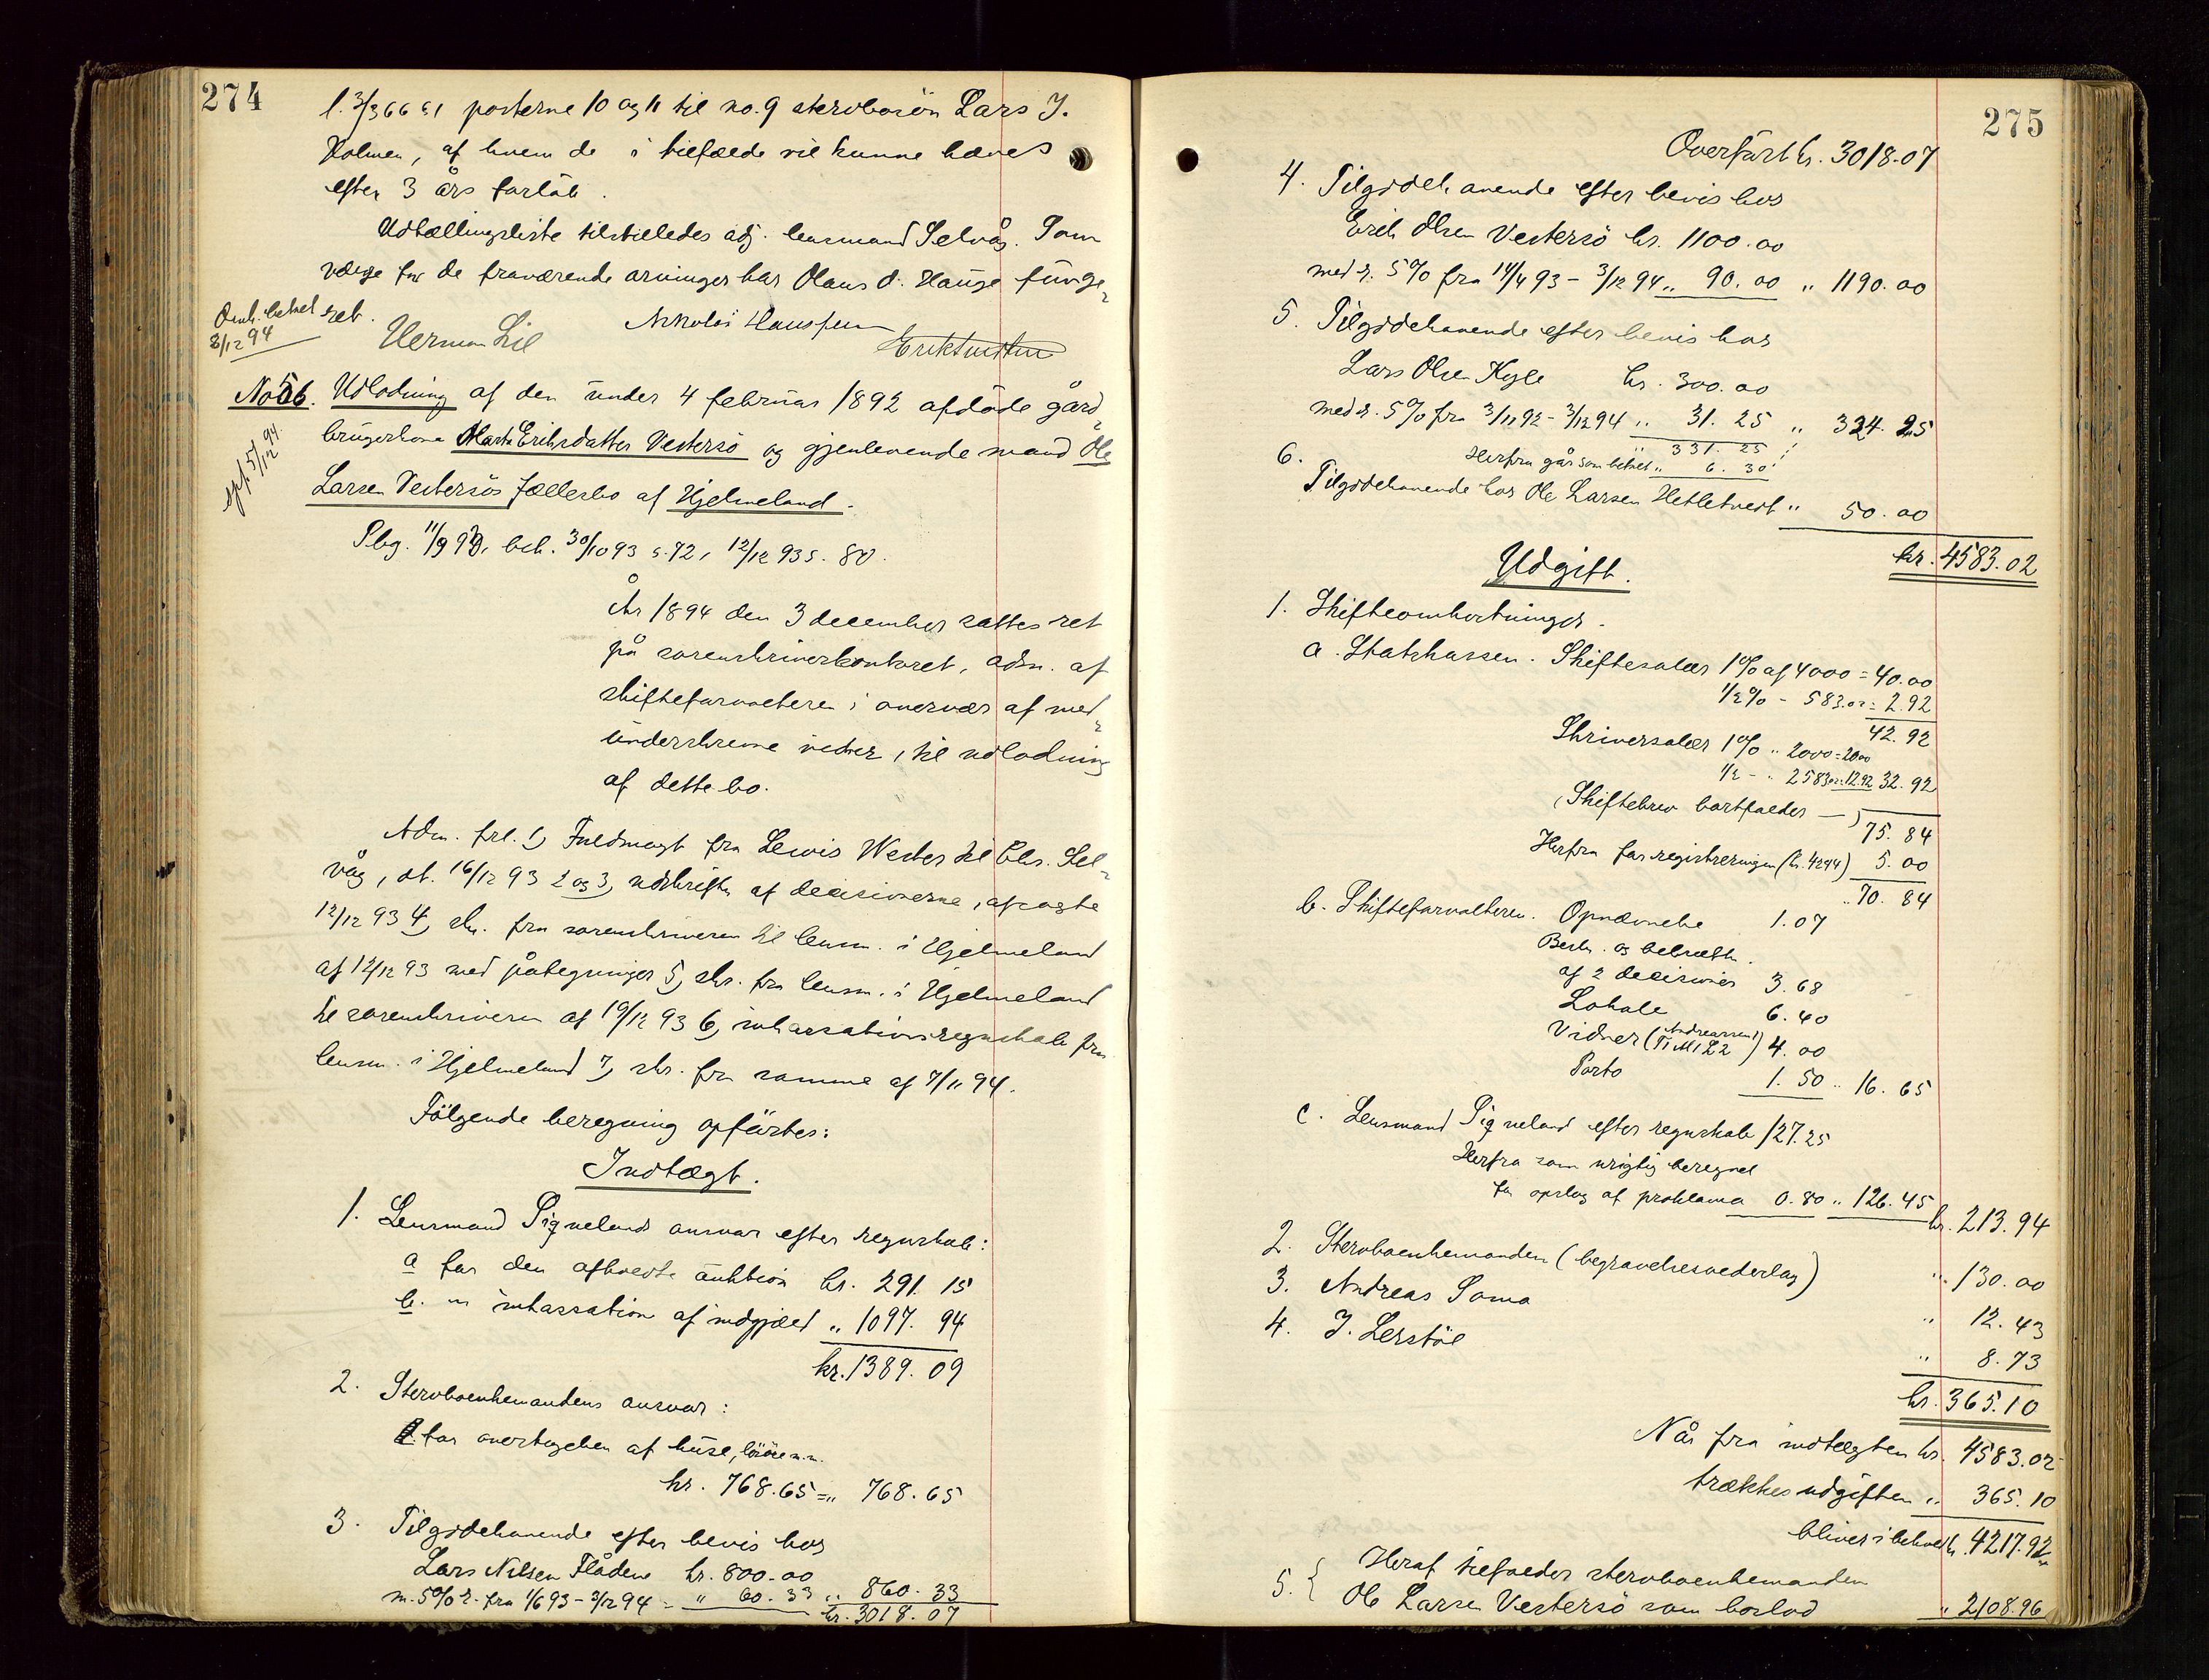 274
l. 3/3 66 61 posterne 10 og 11 til no. 9 stervbosön Lars J.
Holmen, af hvem de i tilfælde vil kunne hæves
efter 3 års forløb.
Udtællingsliste tilstilledes adj. lensmand Selvåg. Som
værge for de fraværende arvinger har Olaus d. Hauge funge-
ret.
Omk. betalt
3/12 94
Herman Lie
Nikolai Hansen
No 56. Udlodning af den under 4 februar 1892 afdøde gård-
brugerkone Marta Eriksdatter Vestersö og gjenlevende mand Ole
Larsen Vestersös fællesbo af Hjelmeland.
5/12 94
Sbg. 11/9 93, beh. 30/10 93 s. 72, 12/12 93 s. 80.
År 1894 den 3 december sattes ret
på sorenskriverkontoret, adm. af
skifteforvalteren i overvær af med-
underskrevne vidner, til udlodning
af dette bo.
Adm. frl. 1, Fuldmagt fra Lewis Wester til Chr. Sel-
våg, dt. 16/12 93 2 og 3, udskrifter af decisionerne, afsagte
12/12 93 4, skr. fra sorenskriveren til lensm. i Hjelmeland
af 14/12 93 med påtegninger 5, skr. fra lensm. i Hjelmeland
til sorenskriveren af 19/12 93 6, inkassationsregnskab fra
lensm. i Hjelmeland 7, skr. fra samme af 7/11 94.
Følgende beregning opførtes:
Indtægt.
1. Lensmand Signelands ansvar efter regnskab:
a for den afholdte auktion kr. 291. 15
b. " inkassation af indgjæld " 1097. 94
kr. 1389. 09
2. Stervboenkemandens ansvar:
for overtagelsen af huse, løsøre m.m.
kr. 768.65 = " 768. 65
3. Tilgodehavende efter bevis hos
Lars Nilsen Flådene kr. 800.00
m. 5% r. fra 1/6 93 - 3/12 94 = " 60. 33 " 860. 33
kr. 3018. 07
275
Overført kr. 3018.07
4. Tilgodehavende efter bevis hos
Erik Olsen Vestersö kr. 1100.00
med r. 5% fra 14/4 93 - 3/12 94 " 90. 00 " 1190. 00
5. Tilgodehavende efter bevis hos
Lars Olsen Kyle kr. 300.00
med r. 5% fra 3/11 92 - 3/12 94 " 31. 25 " 324. 25
" 331. 25
Herfra går som betalt " 6. 30
6.
Tilgodehavende hos Ole Larsen Hetletvedt " 50.00
kr. 4583.02
Udgift.
1. Skifteomkostninger.
a. Statskassen. Skiftesalær 1% af 4000 = 40.00
1/2% - 583.02 = 2.92
42.92
Skriversalær 1% " 2000 = 20.00
1/2 - " 2583.02 = 12.92 32.92
(Skiftebrev bortfalder — )
75. 84
Herfra for registreringen (kr. 4294) 5.00
" 70. 84
b. Skifteforvalteren. Opnævnelse 1.07
Besk. og bekræft.
af 2 decisioner 3.68
Lokale 6.40
Vidner ( Andreassen 1 ) 4.00
Porto 1.50 " 16. 65
c. Lensmand Signeland efter regnskab 127.25
Herfra som urigtig beregnet
for opslag af proklama 0.80 " 126.45
kr. 213.94
2. Stervboenkemanden (begravelsesvederlag) " 130.00
3. Andreas Soma " 12. 43
4. J. Lerstöl " 8. 73
kr. 365.10
Når fra indtægten kr. 4583.02
trækkes udgiften " 365. 10
bliver i behold kr. 4217.92
5. { Heraf tilfalder stervboenkemanden
Ole Larsen Vestersö som boslod " 2108.96